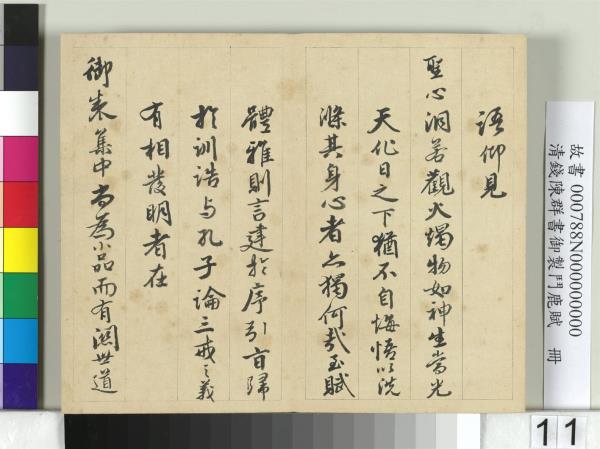 語仰見
聖心洞若觀火燭物如神生當光
天化日之下猶不自悔悟以洗
滌其身心者亦獨何哉至賦
體雅則言建於序引旨歸
於訓誥與孔子論三戒之義
有相發明者在
御集集中尚為小品而有關世道
故書 000788N000000000
清錢陳群書御製鬥鹿賦 冊
11